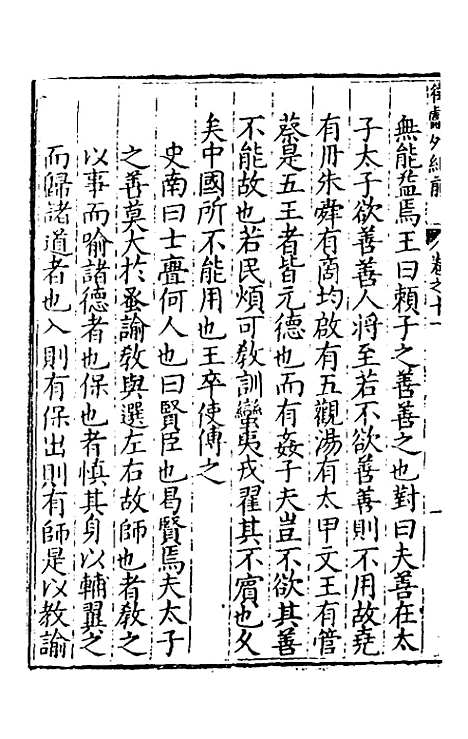 無能盡焉王曰頼子之善善之也對曰夫善在太
子太子欲善善人將至若不欲善善則不用故堯
有丹朱舜有商均啟有五觀湯有太甲文王有管
蔡是五王者皆元德也而有姦子夫豈不欲其善
不能故也若民煩可教訓蠻夷戎翟其不賓也久
矣中國所不能用也王卒使傅之
史南曰士亹何人也曰賢臣也曷賢焉夫太子
之善莫大於蚤諭敎與選左右故師也者敎之
以事而喻諸德者也保也者慎其身以輔翼之
而歸諸道者也入則有保出則有師是以教諭
卷之十一